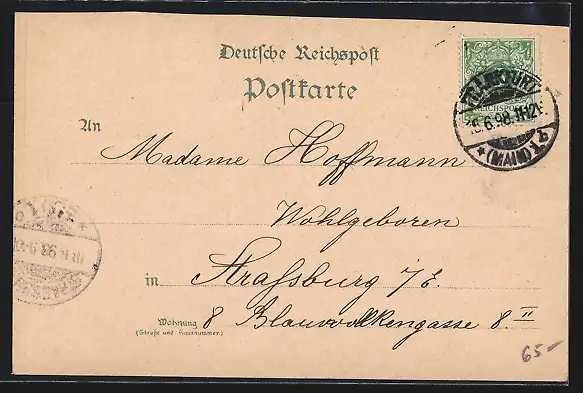 Deutsche Reichspost
Postkarte
FRANKFURT
REICHSPOST
6.98.11-12V.
(MAIN)
An
Madame Hoffmann
Wohlgeboren
in Straßburg i/E.
Wohnung
(Straße und Hausnummer)
8 Blauwolkengasse 8 II
65-